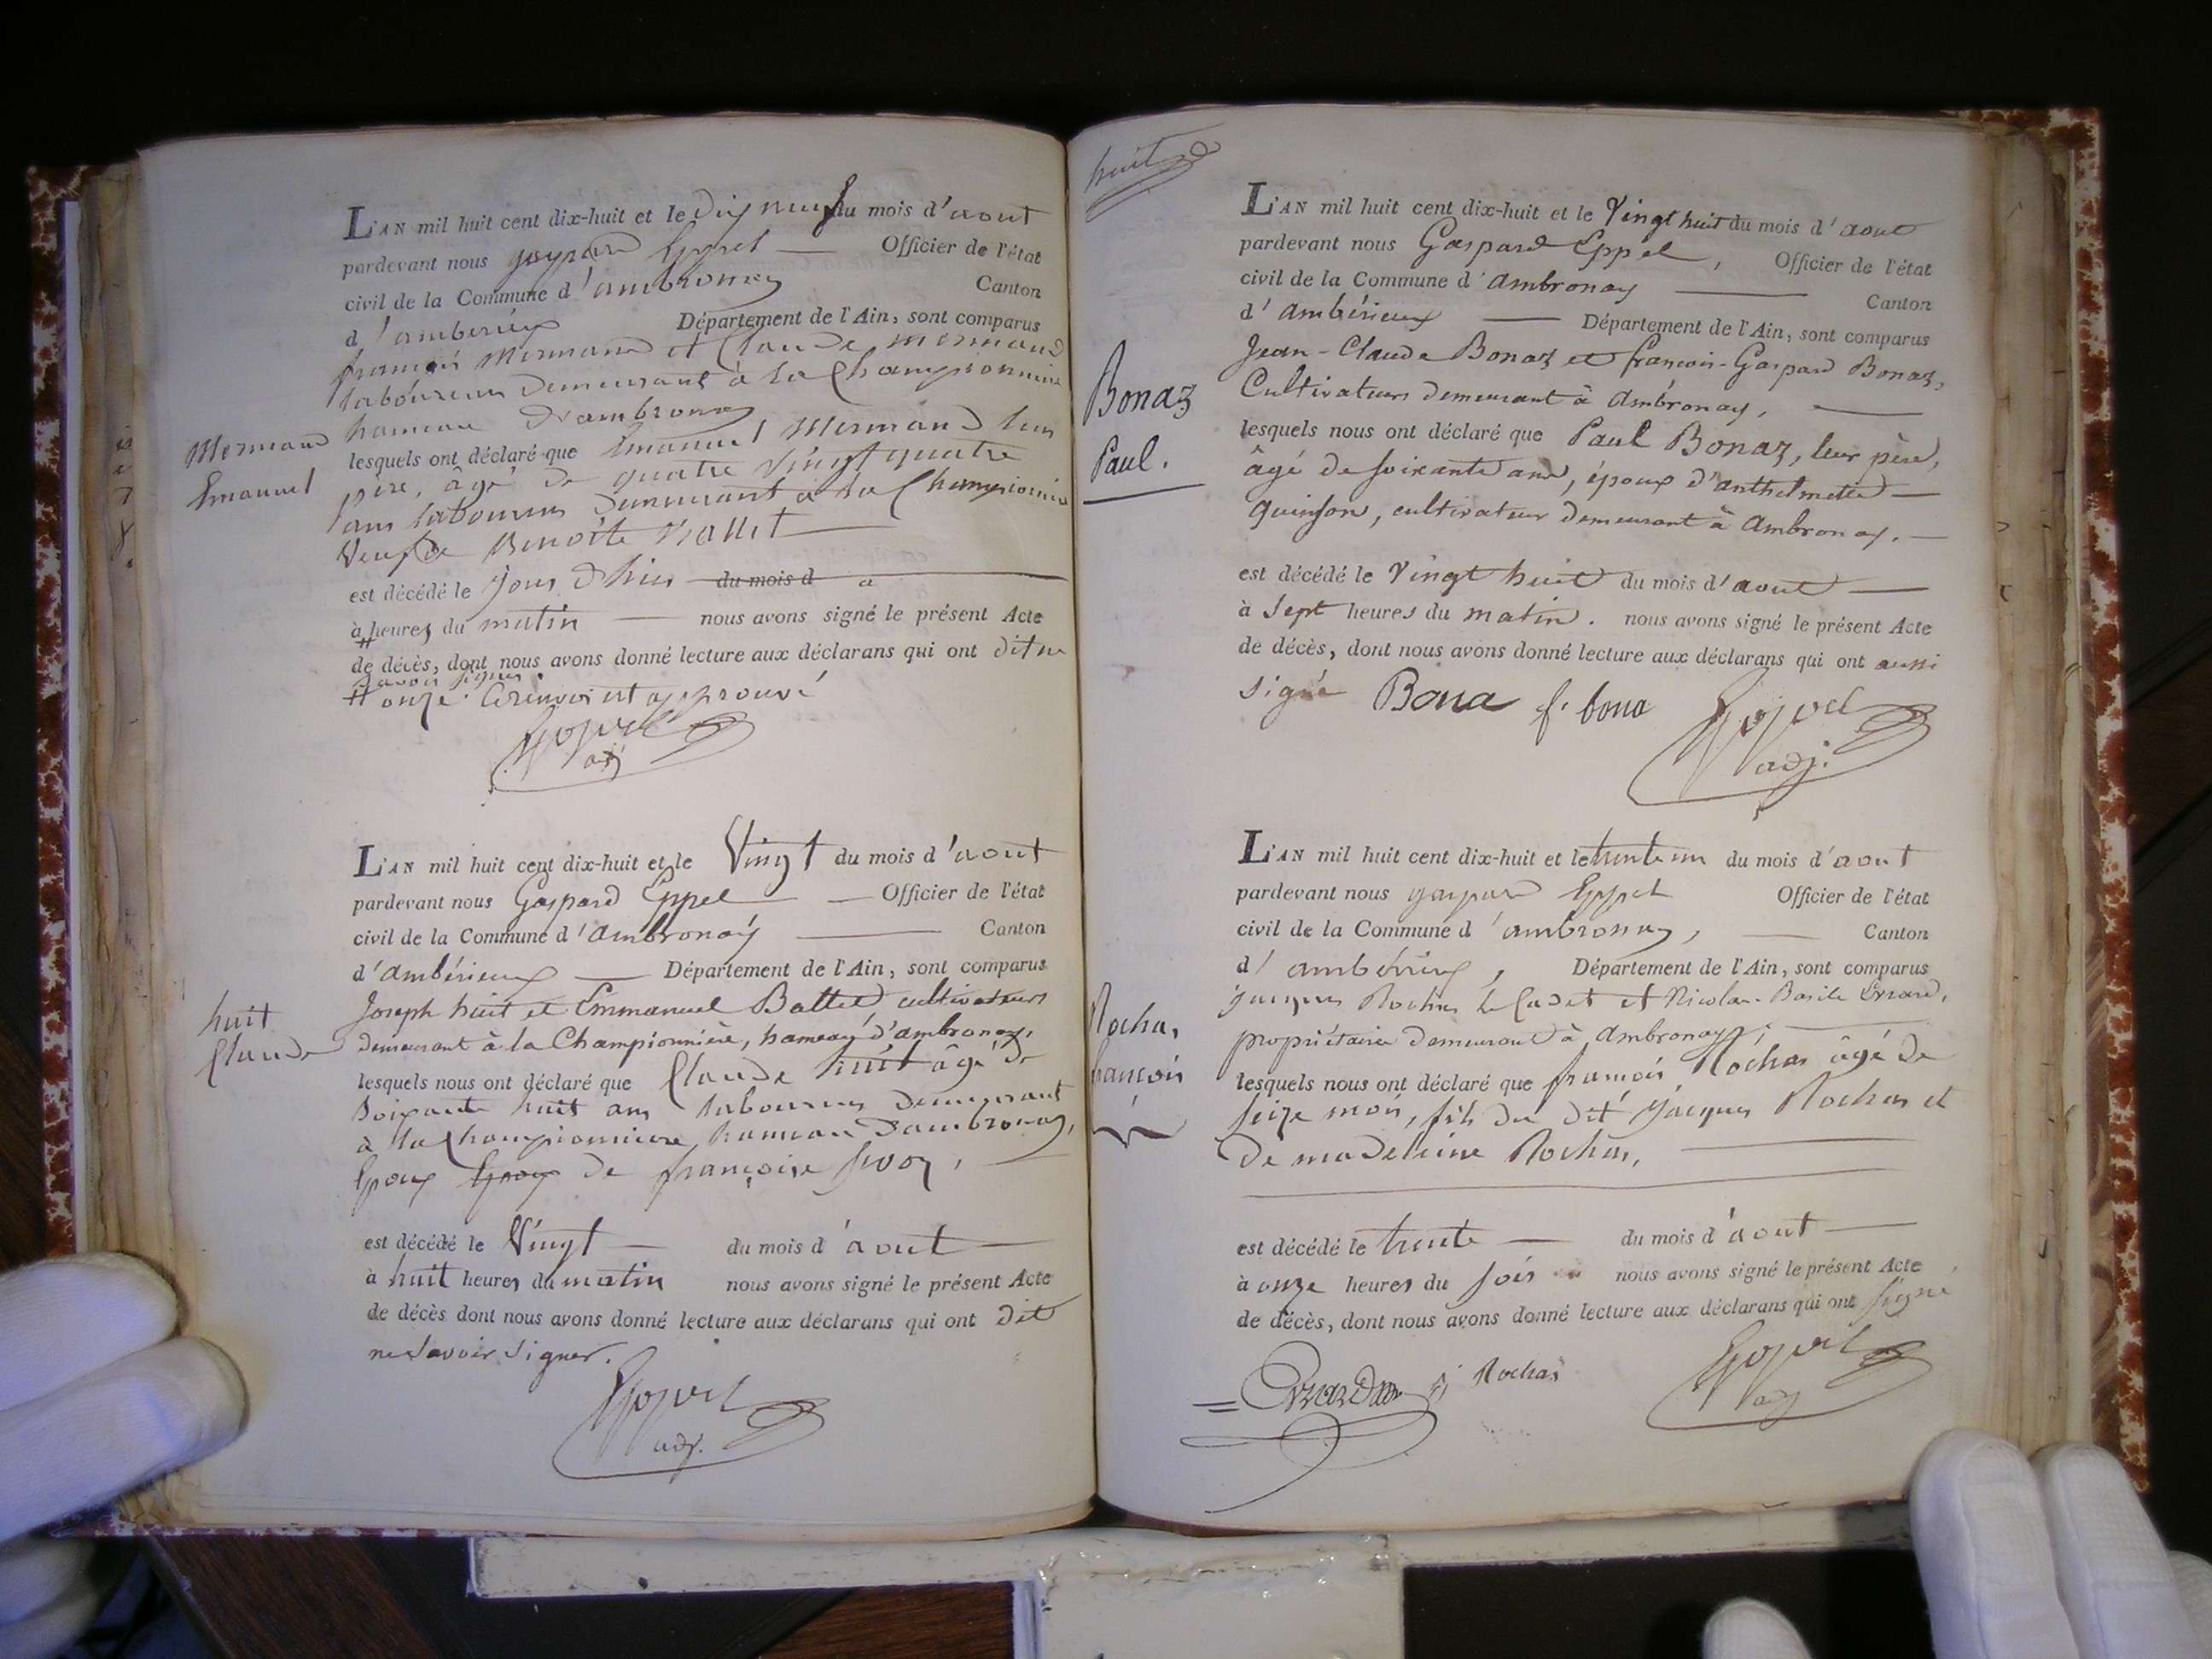 L'AN mil huit cent dix-huit et le dix neuf du mois d'aout
pardevant nous gaspard Eppel — Officier de l'état
civil de la Commune d'ambronay Canton
d'amberieux Département de l'Ain, sont comparus
françois Mermand et Claude Mermand
laboureurs demeurant à la Championnière
hameau d'ambronay
Mermand
Emanuel
lesquels ont déclaré que Emanuel Mermand leur
père, âgé de quatre vingt quatre
ans laboureur demeurant à la Championnière
veuf de Benoite
est décédé le jour d'hier du mois d a
à # heures du matin — nous avons signé le présent Acte
de décès, dont nous avons donné lecture aux déclarans qui ont dit ne
savoir signer.
# onze. Ce renvoi est approuvé
Eppel
adj
L'AN mil huit cent dix-huit et le Vingt du mois d'aout
pardevant nous Gaspard Eppel — Officier de l'état
civil de la Commune d'ambronay — Canton
d'ambérieux — Département de l'Ain, sont comparus
Joseph huit et Emmanuel Battet cultivateurs
demeurant à la Championnière, hameau d'ambronay,
huit
Claude
lesquels nous ont déclaré que Claude huit âgé de
soixante huit ans laboureur demeurant
à la Championniere hameau d'ambronay,
Epoux Epoux de françoise
est décédé le Vingt — du mois d'aout —
à huit heures du matin nous avons signé le présent Acte
de décès dont nous avons donné lecture aux déclarans qui ont dit
ne savoir signer.
Eppel
adj.
huit
L'AN mil huit cent dix-huit et le Vingt huit du mois d'aout
pardevant nous Gaspard Eppel, Officier de l'état
civil de la Commune d'ambronay — Canton
d'ambérieux — Département de l'Ain, sont comparus
Jean-Claude Bonaz et françois-Gaspard Bonaz,
Cultivateurs demeurant à ambronay, —
Bonaz
Paul.
lesquels nous ont déclaré que Paul Bonaz, leur père,
âgé de soixante ans, époux d'anthelmette —
quinson, cultivateur demeurant à ambronay. —
est décédé le Vingt huit du mois d'aout —
à sept heures du matin. nous avons signé le présent Acte
de décès, dont nous avons donné lecture aux déclarans qui ont aussi
signé Bona f. bona Eppel
adj.
L'AN mil huit cent dix-huit et le trente un du mois d'aout
pardevant nous gaspard Eppel Officier de l'état
civil de la Commune d'ambronay, — Canton
d'ambérieux, Département de l'Ain, sont comparus
jacques Rochas le Cadet et Nicolas-Basile Evrard,
propriétaires demeurant à Ambronay; —
Rochas
françois
lesquels nous ont déclaré que françois Rochas âgé de
seize mois, fils du dit jacques Rochas et
de madeleine Rochas, —
est décédé le trente — du mois d'aout —
à onze heures du soir nous avons signé le présent Acte
de décès, dont nous avons donné lecture aux déclarans qui ont signé
Evrard j Rochas Eppel
adj